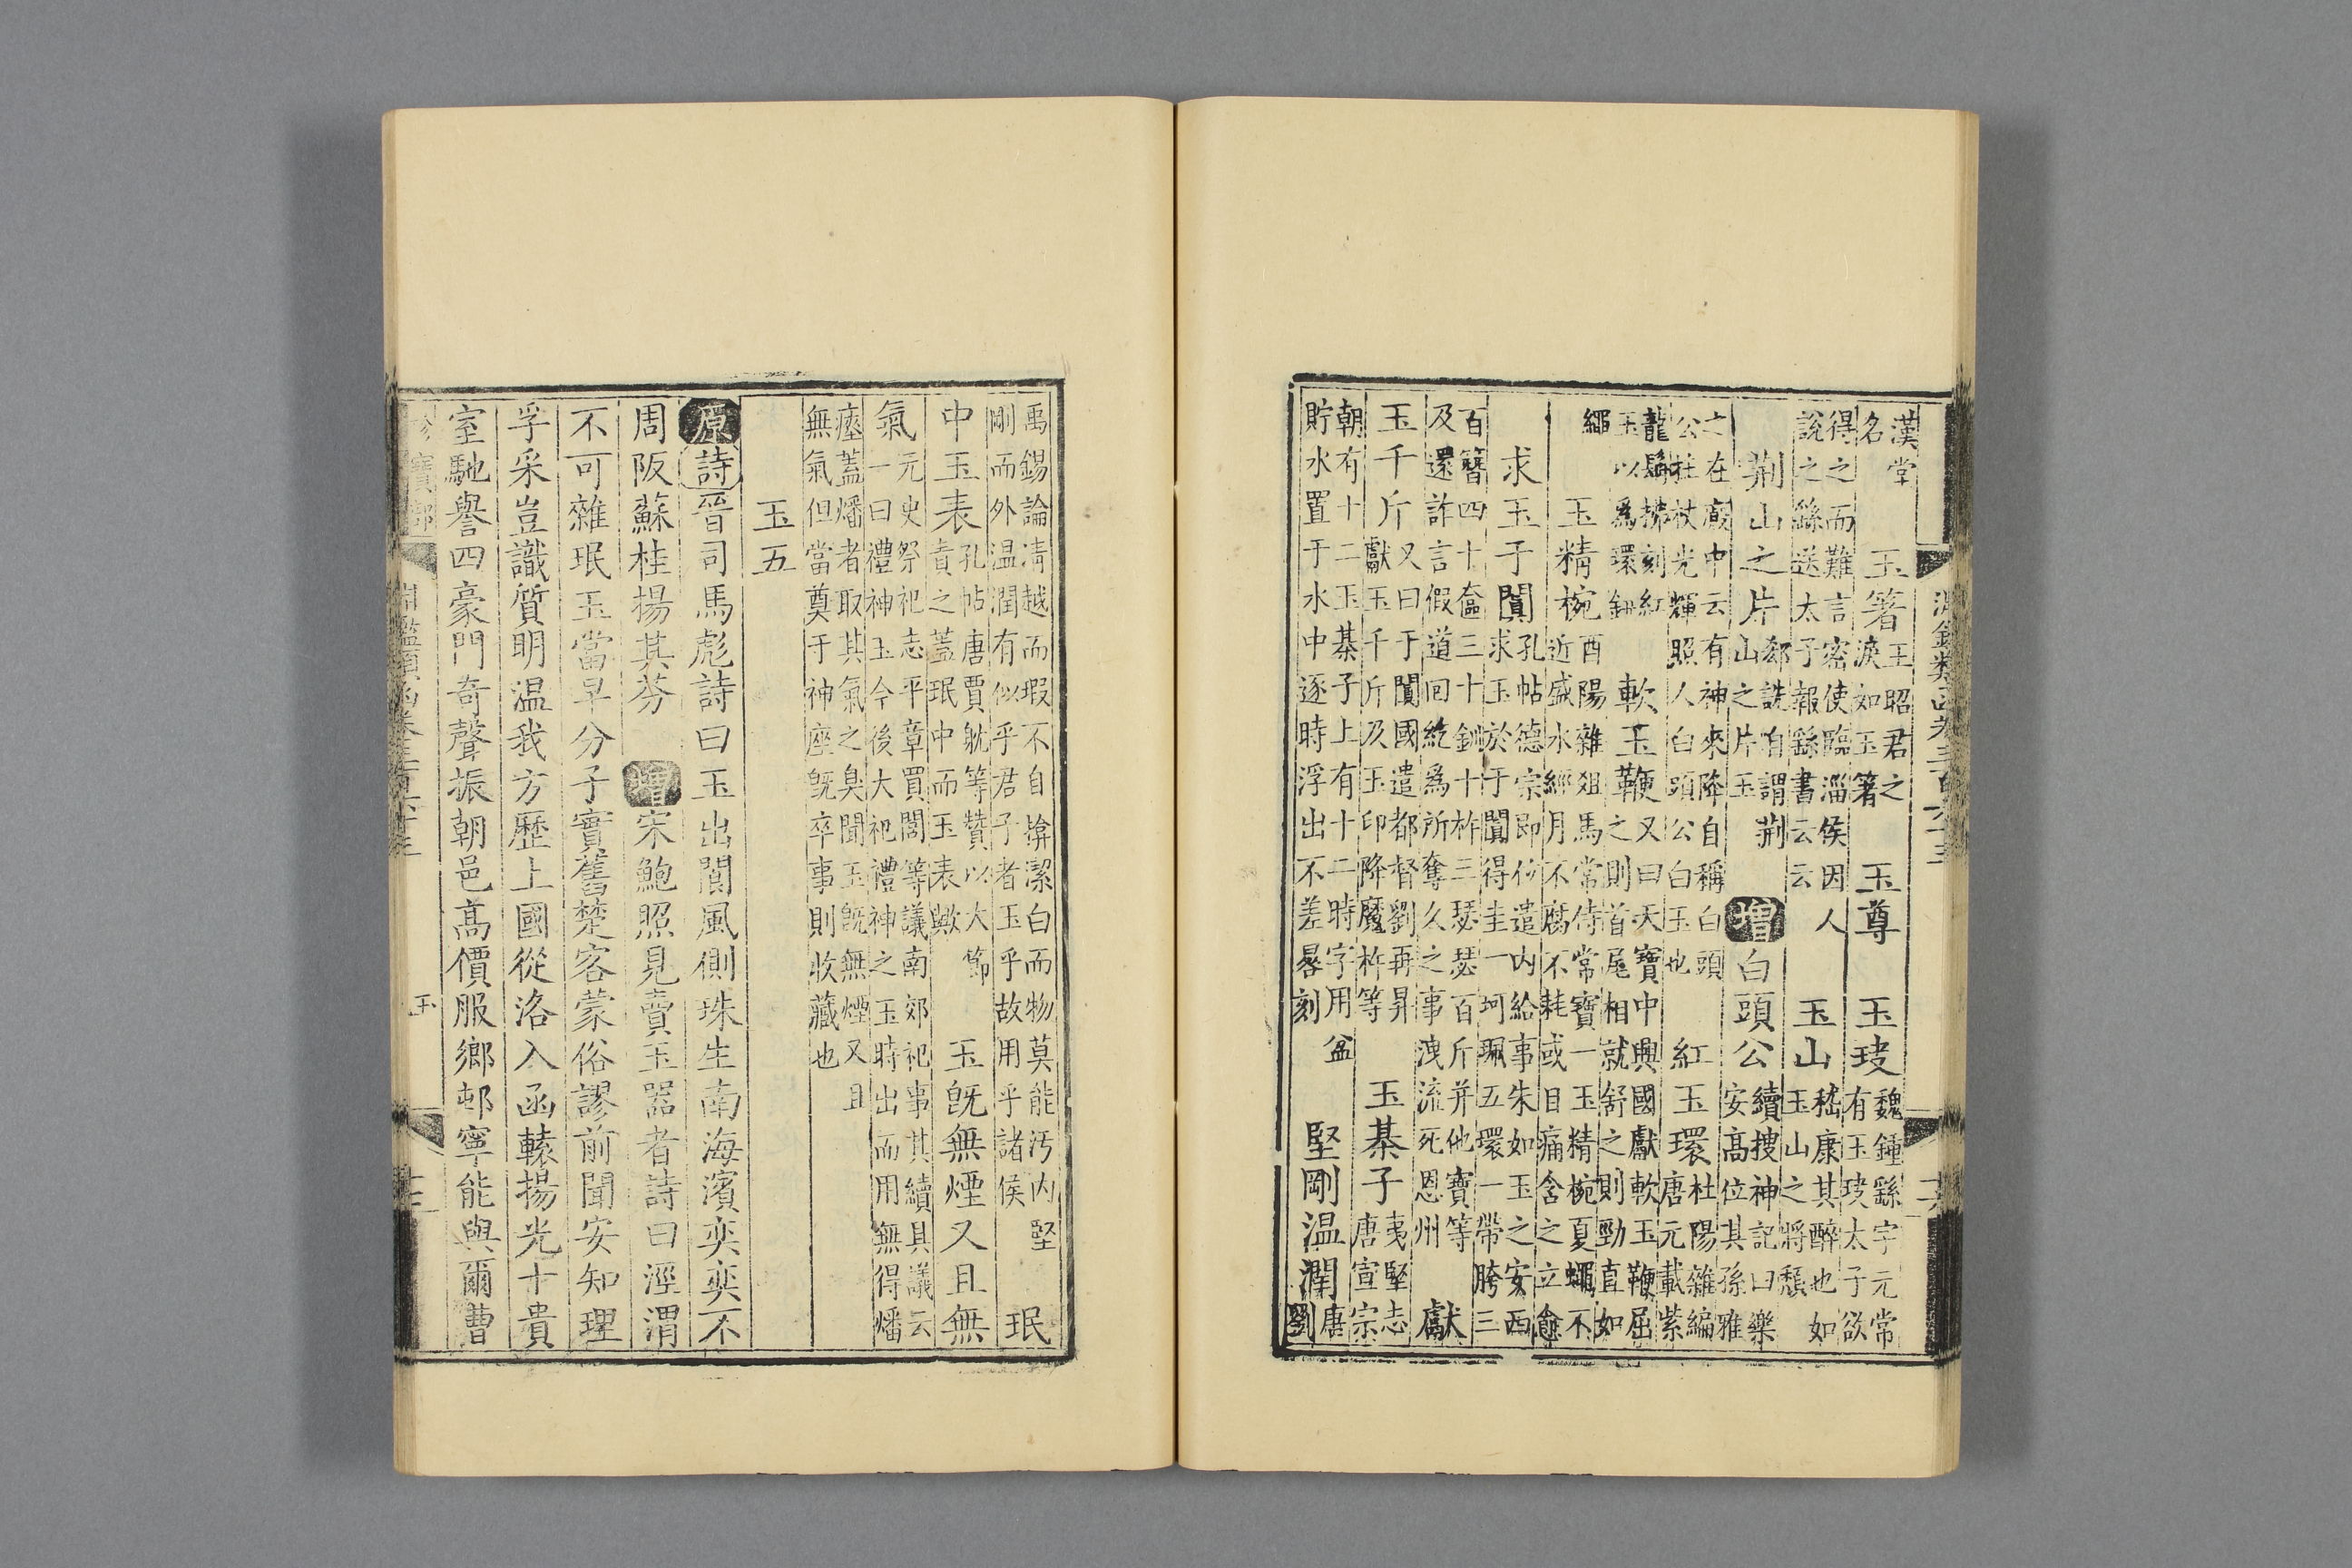 淵鑑類函卷三百六十三 十六
漢堂名 玉箸王昭君之淚如玉箸 玉尊 玉玦魏鍾繇字元常有玉玦太子欲
得之而難言密使臨淄侯因人說之繇送太子報繇書云云 玉山嵇康其醉也如玉山之將頹
荆山之片郄詵自謂荆山之片玉 增白頭公續搜神記曰樂安高位其孫雅
之在廐中云有神來降自稱白頭公柱杖光輝照人白頭公白玉也 紅玉環杜陽雜編唐元載紫
龍髯拂刻紅玉以爲環鈕 軟玉鞭又曰天寶中興國獻軟玉鞭屈之則首尾相就舒之則勁直如
繩 玉精椀酉陽雜俎馬常侍常寶一玉精椀夏蠅不近盛水經月不腐不耗或目痛含之立愈
求玉于闐孔帖德宗即位遣内給事朱如玉之安西求玉於于闐得圭一珂珮五環一帶胯三
百簪四十奩三十釧十杵三瑟瑟百斤并他寶等及還詐言假道回紇爲所奪久之事洩流死恩州 獻
玉千斤又曰于闐國遣都督劉再昇獻玉千斤及玉印降魔杵等 玉棊子夷堅志唐宣宗
朝有十二玉棊子上有十二時字用盆貯水置于水中逐時浮出不差晷刻 堅剛温潤唐劉
禹錫論清越而瑕不自揜潔白而物莫能汚内堅剛而外温潤有似乎君子者玉乎故用乎諸侯 珉
中玉表孔帖唐賈躭等贊以大飾責之蓋珉中而玉表歟 玉旣無煙又且無
氣元史祭祀志平章買閭等議南郊祀事其續具議云一曰禮神玉今後大祀禮神之玉時出而用無得燔
瘞蓋燔者取其氣之臭聞玉旣無煙又且無氣但當奠于神座旣卒事則收藏也
玉五
原詩晉司馬彪詩曰玉出閬風側珠生南海濱奕奕不
周阪蘇桂揚其芬 增宋鮑照見賣玉器者詩曰涇渭
不可雜珉玉當早分子實舊楚客蒙俗謬前聞安知理
孚采豈識質明温我方歷上國從洛入函轅揚光十貴
室馳譽四豪門奇聲振朝邑高價服鄉邨寧能與爾曹
珍寶部 淵鑑類函卷三百六十三 玉